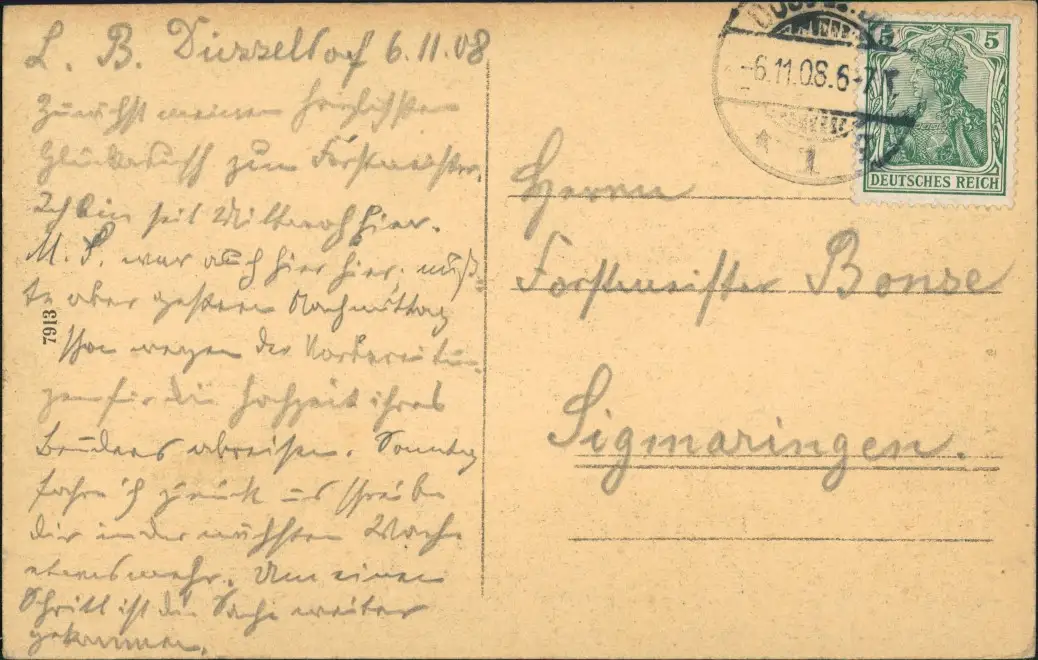 L. B. Düsseldorf 6.11.08
Zunächst meinen herzlichsten
Glückwunsch zum Forstmeister.
Ich bin seit Mittwoch hier.
M. P. war auch hier hier, muß-
te aber gestern Nachmittag
schon wegen der Vorbereitun-
gen für die Hochzeit ihres
Bruders abreisen. Sonntag
fahre ich zurück und schreibe
dir in der nächsten Woche
etwas mehr. Um einen
Schritt ist die Sache weiter
gekommen.
7913
-6.11.08.6-7
1
5 5
DEUTSCHES REICH
Herrn
Forstmeister Bonse
Sigmaringen.